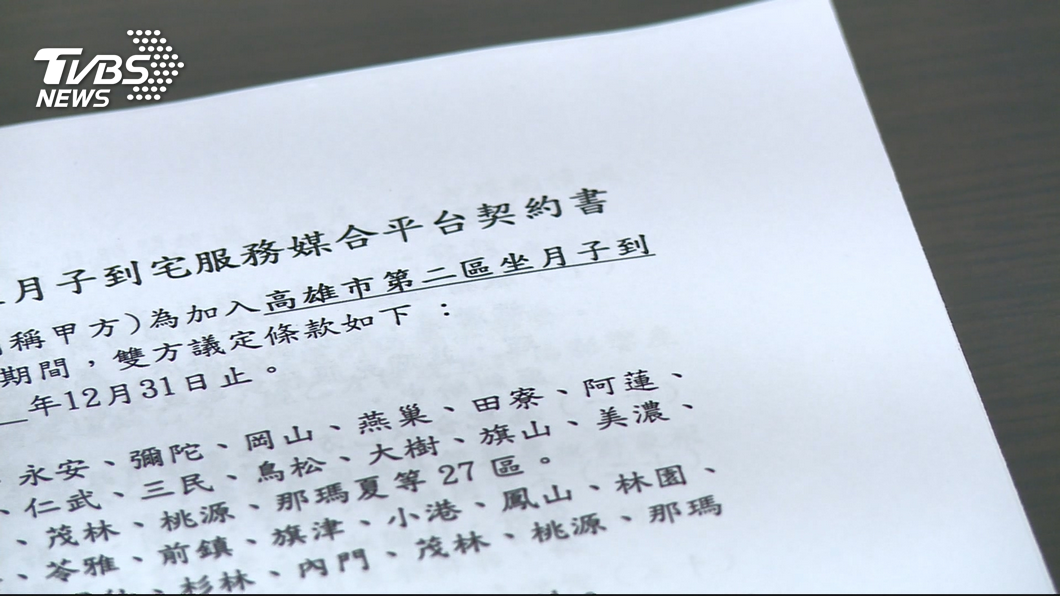 TVBS
NEWS
月子到宅服務媒合平台契約書
稱甲方)為加入高雄市第二區坐月子到
期間，雙方議定條款如下：
年12月31日止。
永安、彌陀、岡山、燕巢、田寮、阿蓮、
、仁武、三民、鳥松、大樹、旗山、美濃、
、茂林、桃源、那瑪夏等27區。
、苓雅、前鎮、旗津、小港、鳳山、林園、
、杉林、內門、茂林、桃源、那瑪